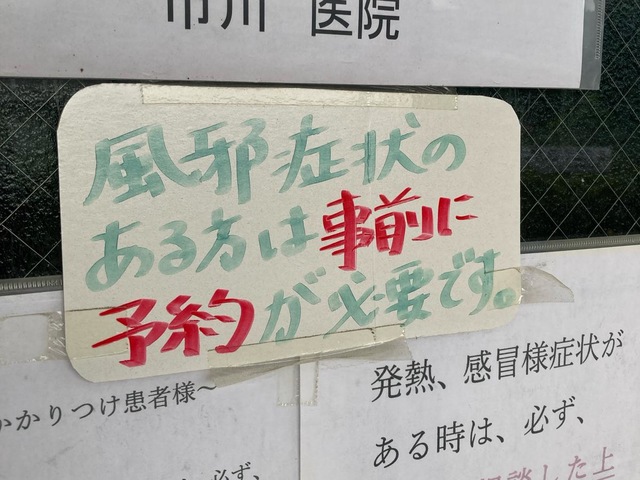 市川 医院
風邪症状の
ある方は事前に
予約が必要です。
かかりつけ患者様～
必ず、
発熱、感冒様症状が
ある時は、必ず、
相談した上